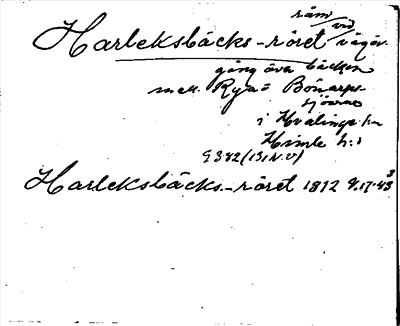 Harleksbäcks-röret råm vid vägöv.
gång över bäcken
mell. Rya= Bönarps-
sjöarna
i Hvalinge sn
Himle h:d
GS82 (131 N.V)
Harleksbäcks-röret 1812 8.17.43³